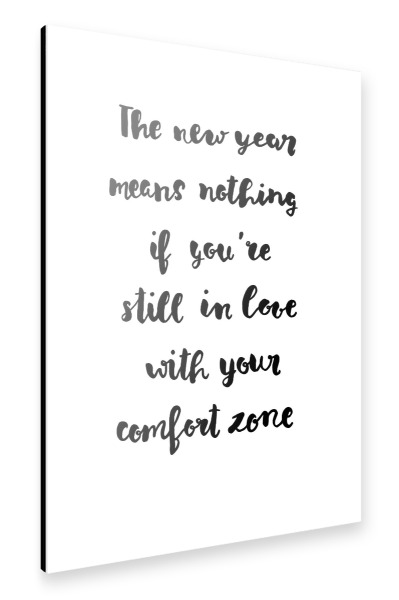 The new year
means nothing
if you're
still in love
with your
comfort zone